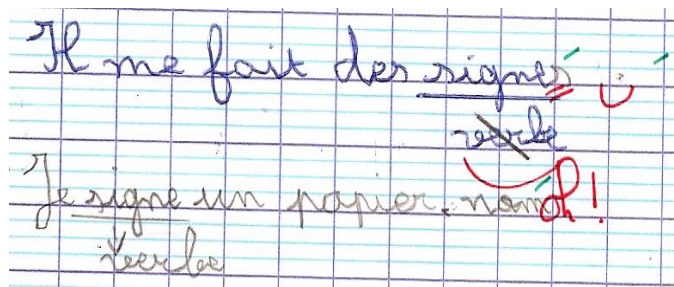 Il me fait des signes
verbe
Je signe un papier. nom oh!
verbe